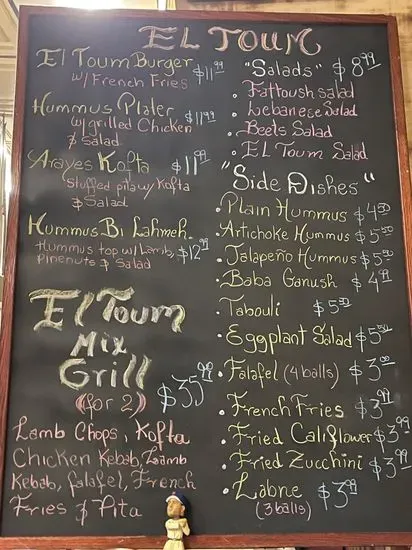 EL TOUM
El Toum Burger
w/ French Fries $11.99
Hummus Plater
w/ grilled Chicken $11.99
& Salad
Arayes Kofta $11.99
Stuffed pita w/ Kofta
& Salad
Hummus Bi Lahmeh.
Hummus top w/ Lamb, $12.99
pinenuts & Salad
El Toum
Mix
Grill
(for 2) $35.99
Lamb Chops, Kofta
Chicken Kebab, Lamb
Kebab, falafel, French
Fries & Pita
"Salads" $8.99
• Fattoush salad
• Lebanese Salad
• Beets Salad
• EL Toum Salad
"Side Dishes"
• Plain Hummus $4.50
• Artichoke Hummus $5.50
• Jalapeño Hummus $5.50
• Baba Ganush $4.99
• Tabouli $5.50
• Eggplant Salad $5.50
• Falafel (4 balls) $3.00
• French Fries $3.99
• Fried Califlower $3.99
• Fried Zucchini $3.99
• Labne $3.99
(3 balls)